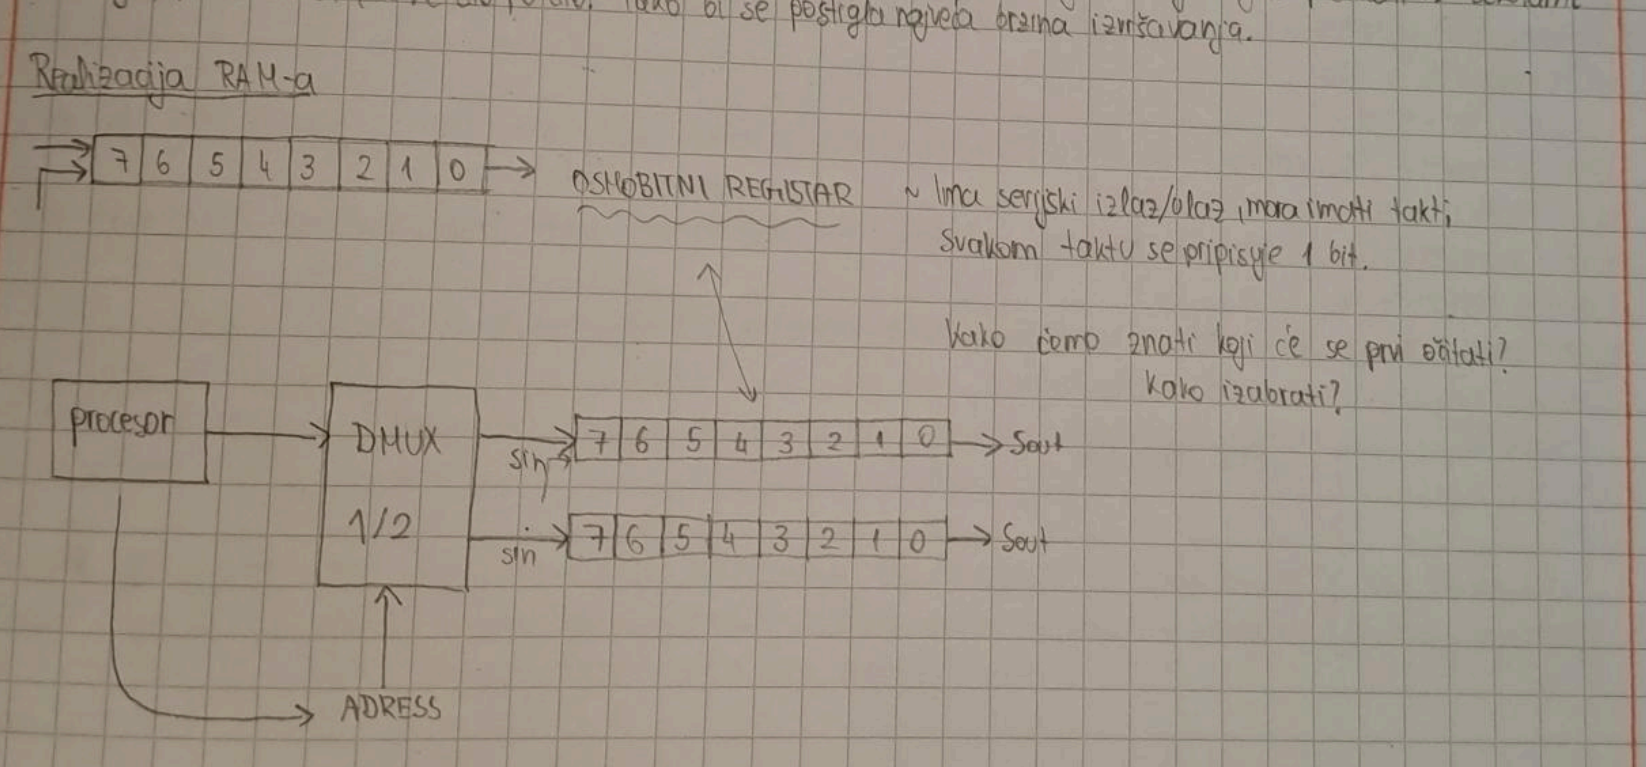 bi se postigla najveća brzina izvršavanja.
Realizacija RAM-a
7 6 5 4 3 2 1 0
OSMOBITNI REGISTAR ~ Ima serijski izlaz/ulaz, mora imati takt,
svakom taktu se pripisuje 1 bit.
Kako ćemo znati koji će se prvi očitati?
Kako izabrati?
procesor
DMUX
1/2
sin
7 6 5 4 3 2 1 0
Sout
sin
7 6 5 4 3 2 1 0
Sout
ADRESS